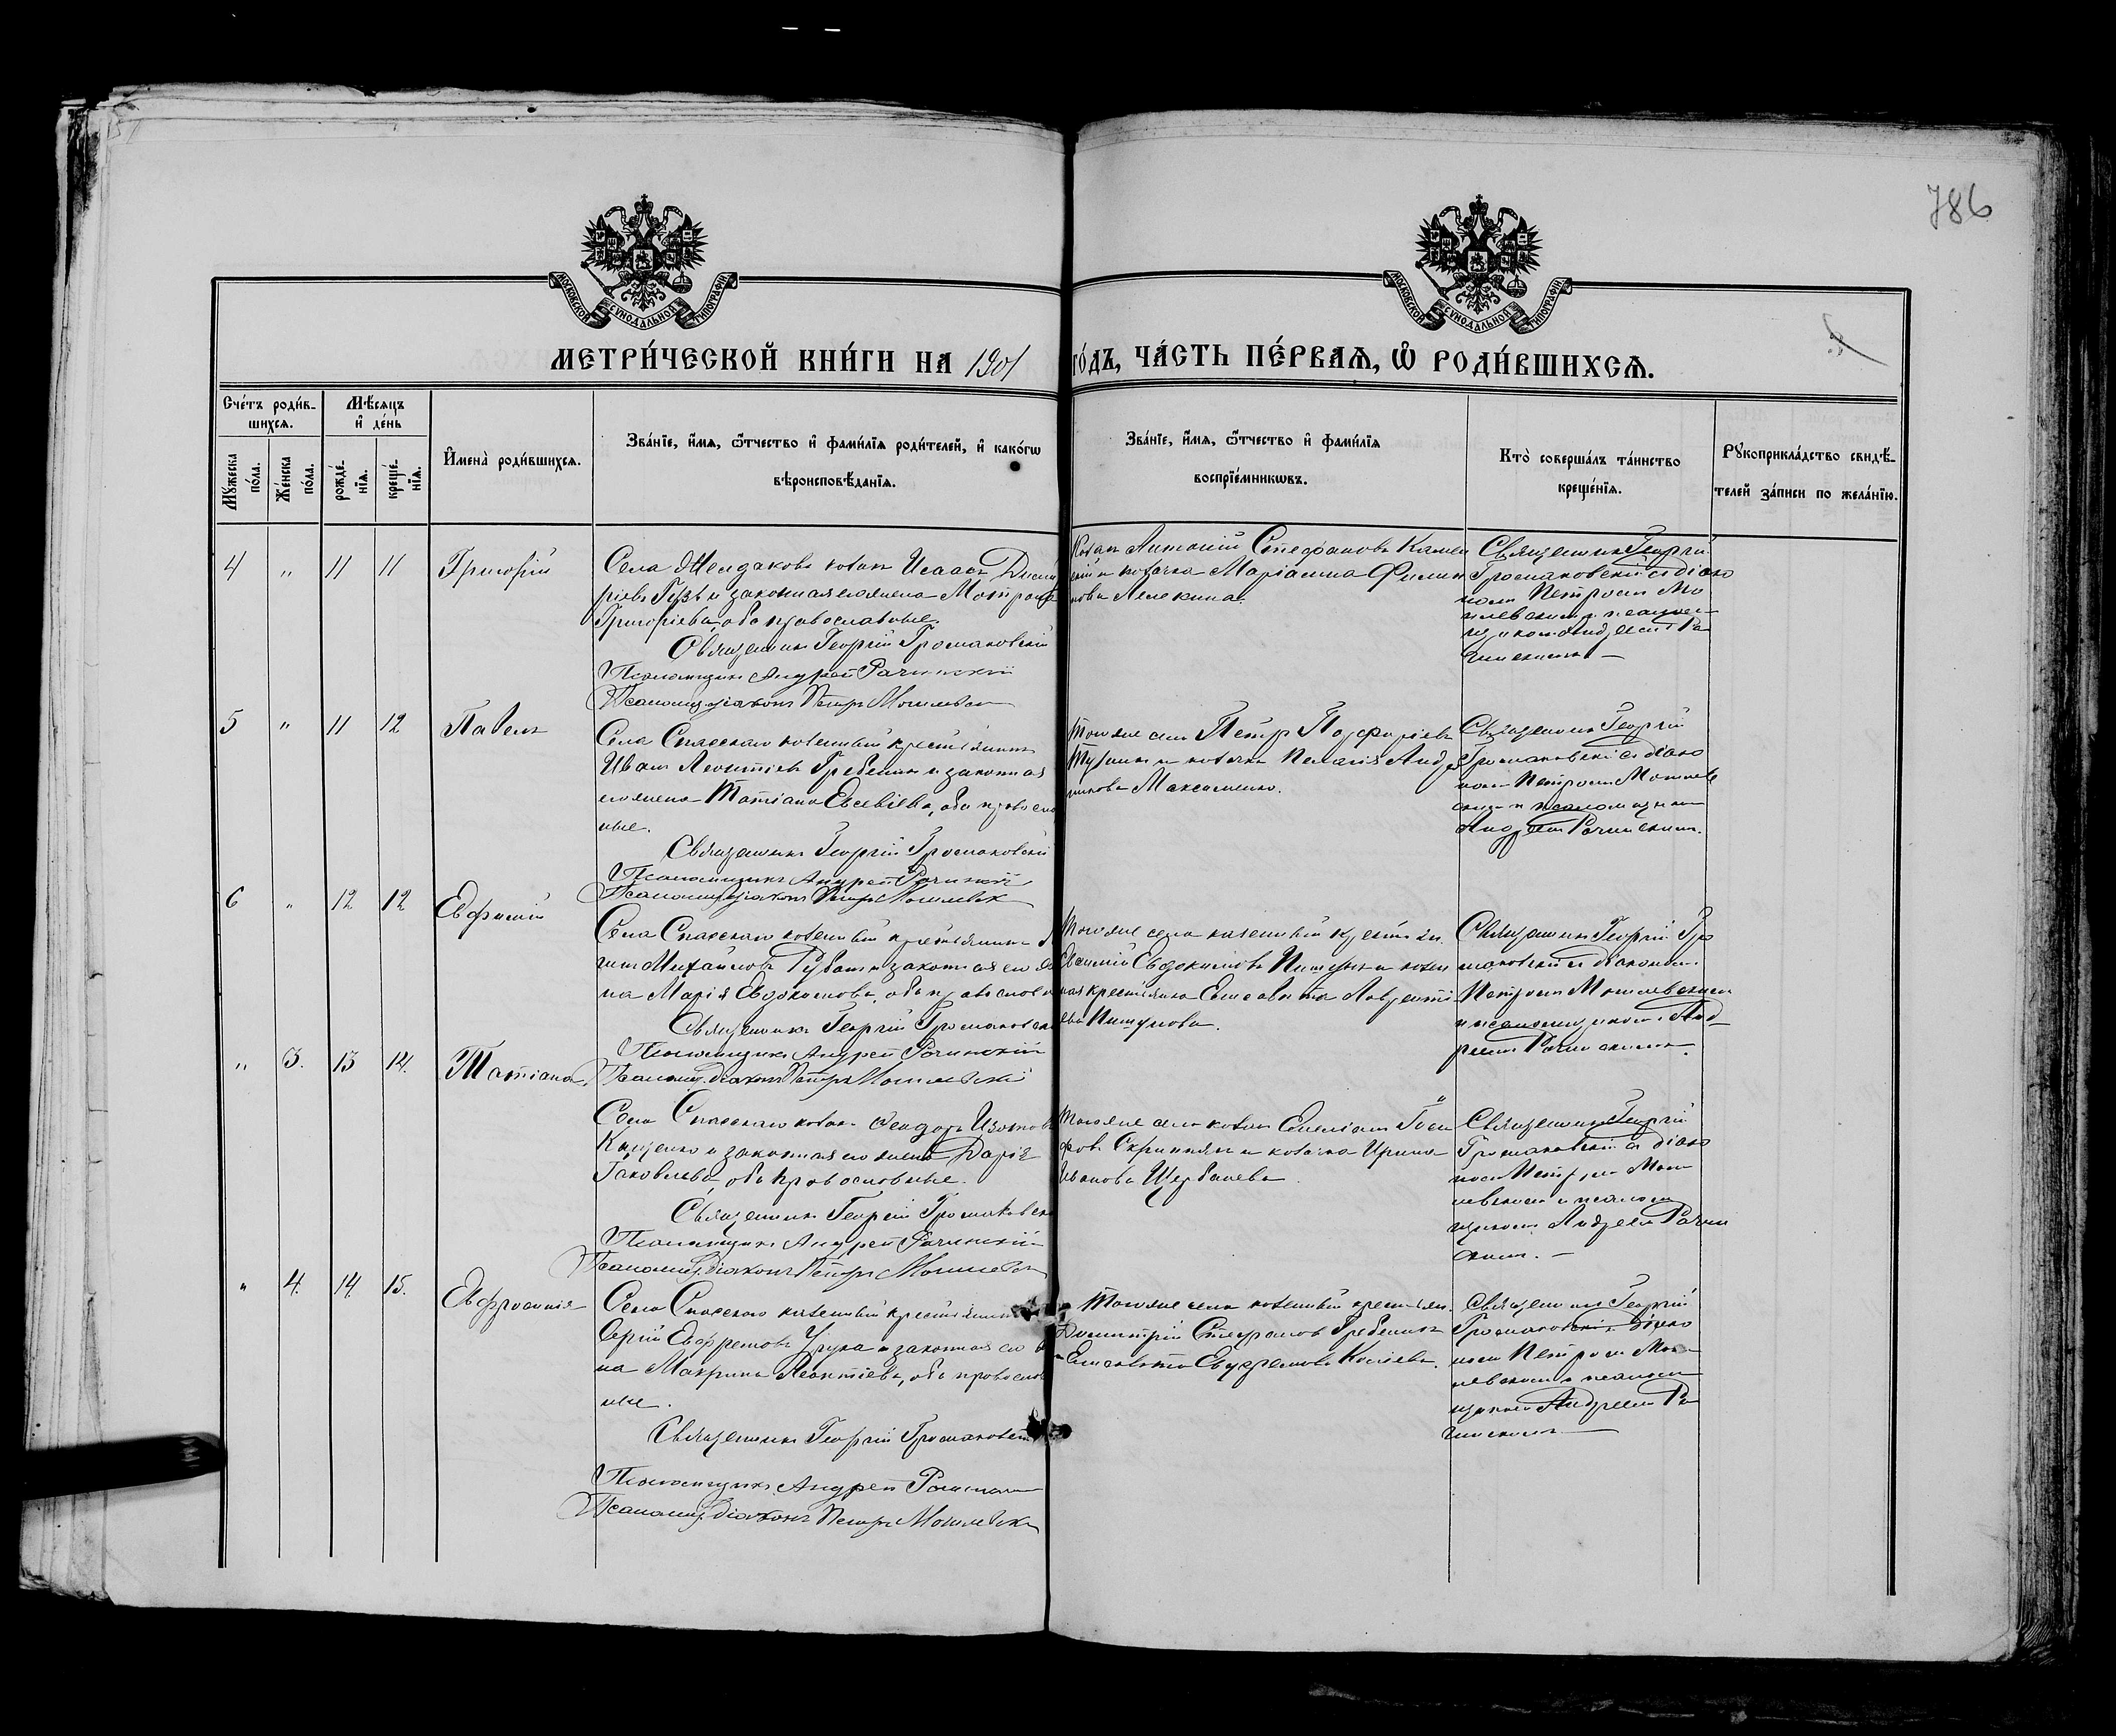 786
МОСКОВСКОЙ СѴНОДАЛЬНОЙ ТИПОГРАФІИ
МОСКОВСКОЙ СѴНОДАЛЬНОЙ ТИПОГРАФІИ
МЕТРИ́ЧЕСКОЙ КНИ́ГИ НА 1901 ГО́ДЪ, ЧА́СТЬ ПЕ́РВАѦ, Ѽ РОДИ́ВШИХСѦ.
Сче́тъ роди́в-
шихсѧ.
Мѣ́сѧцъ
и҆ де́нь
Мꙋ́жеска
по́ла.
Же́нска
по́ла.
рожде́-
нїѧ.
креще́-
нїѧ.
И҆мена̀ роди́вшихсѧ.
Зва́нїе, и҆́мѧ, ѻ҆́тчество и҆ фами́лїѧ роди́телей, и҆ како́гѡ
вѣроисповѣ́данїѧ.
Зва́нїе, и҆́мѧ, ѻ҆́тчество и҆ фами́лїѧ
воспрїе́мникѡвъ.
Кто̀ соверша́лъ та́инство
креще́нїѧ.
Рꙋкоприкла́дство свидѣ́-
телей за́писи по жела́нїю.
4 " 11 11 Григорій
Села козакъ Исаакъ Димит
ріевъ и законная его жена Матрона
Григоріева, оба православные.
Священникъ Георгій Громаковскій
Псаломщикъ Андрей Рачинскій
Псаломщ. діаконъ Петръ Могилевскій
Козакъ Антоній Стефановъ
и козачка Маріанна Филип
пова
Священникъ Георгій
Громаковскій съ діако
номъ Петромъ Мо
гилевскимъ и псалом
щикомъ Андреемъ Ра
чинскимъ. —
5 " 11 12 Павелъ
Села Спасскаго казенный крестьянинъ
Иванъ Леонтіевъ Гребеникъ и законная
его жена Татіана Евсевіева, оба православ
ные.
Священникъ Георгій Громаковскій
Псаломщикъ Андрей Рачинскій
Псаломщ. діаконъ Петръ Могилевскій
Того же села Петръ Порфиріевъ
и козачка Пелагія Анд
Максименко.
Священникъ Георгій
Громаковскій съ діако
номъ Петромъ Могилев
скимъ и псаломщикомъ
Андреемъ Рачинскимъ.
6 " 12 12 Евфимій
Села Спасскаго казенный крестьянинъ
Михайловъ Рубанъ и законная его же
на Марія Евдокимова, оба православн
Священникъ Георгій Громаковскій
Псаломщикъ Андрей Рачинскій
Псаломщ. діаконъ Петръ Могилевскій
Того же села казенный крестьян.
Евдокимовъ и казен
ная крестьянка Елисавета Лавренті
ева
Священникъ Георгій Гро
маковскій съ діакономъ
Петромъ Могилевскимъ
и псаломщикомъ Анд-
реемъ Рачинскимъ.
" 3. 13 14. Татіана
Села Спасскаго козакъ Феодоръ Изотовъ
и законная его жена Дарія
Іаковлева, оба православные.
Священникъ Георгій Громаковскій
Псаломщикъ Андрей Рачинскій
Псаломщ. діаконъ Петръ Могилевскій
Того же села козакъ Емеліанъ Іоси
фовъ и козачка Ирина
Иванова Щербанева.
Священникъ Георгій
Громаковскій съ діако
номъ Петромъ Моги
левскимъ и псалом
щикомъ Андреемъ Рачин
скимъ. —
" 4. 14 15. Евфросинія
Села Спасскаго казенный крестьянинъ
Сергій Ефремовъ и законная его же
на Макрина Леонтіева, оба православ
ные.
Священникъ Георгій Громаковскій
Псаломщикъ Андрей Рачинскій
Псаломщ. діаконъ Петръ Могилевскій
Того же села казенный крестьян.
Димитрій Стефановъ Гребеникъ
и Елисавета
Священникъ Георгій
Громаковскій съ діако
номъ Петромъ Моги
левскимъ и псалом
щикомъ Андреемъ Ра
чинскимъ —